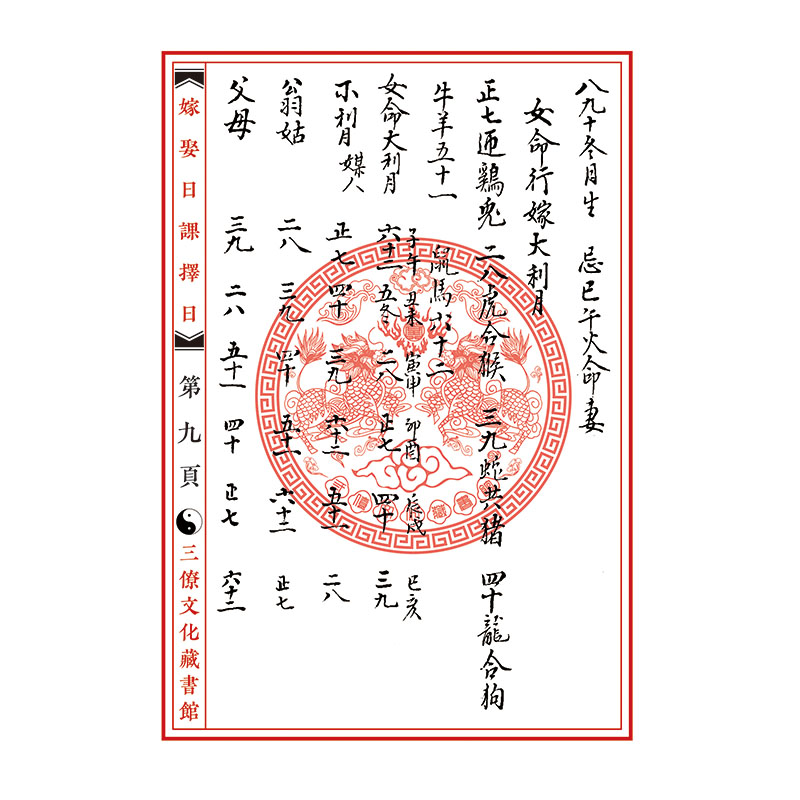 八九十冬月生 忌巳午火命妻
女命行嫁大利月
正七迊鷄兎 二八虎合猴 三九蛇共猪 四十龍合狗
牛羊五十一 鼠馬六十二
子午 丑未 寅申 卯酉 辰戌 巳亥
女命大利月 六十二 五冬 二八 正七 四十 三九
不利月 媒人 正七 四十 三九 六十二 五十一 二八
翁姑 二八 三九 四十 五十一 六十二 正七
父母 三九 二八 五十一 四十 正七 六十二
嫁娶日課擇日 第九頁 三僚文化藏書館